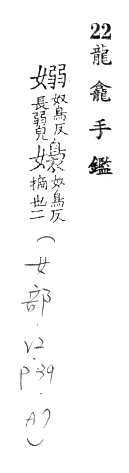 22龍龕手鑑
嫋奴鳥反長弱皃嬝奴鳥反摘也二
(女部.V2.P.39.A9)